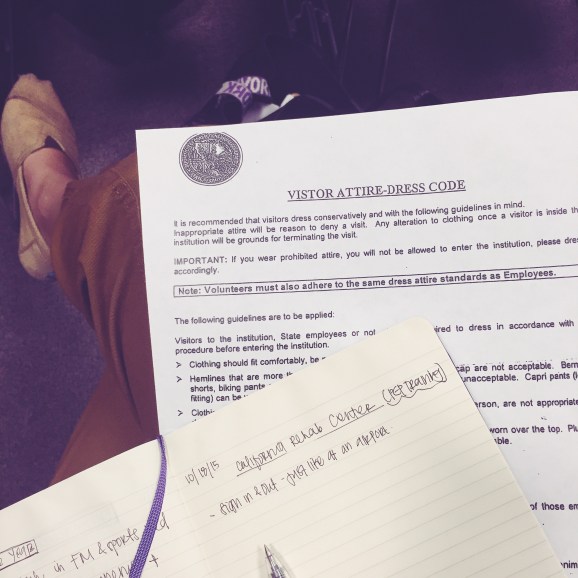 VISTOR ATTIRE-DRESS CODE
It is recommended that visitors dress conservatively and with the following guidelines in mind.
Inappropriate attire will be reason to deny a visit. Any alteration to clothing once a visitor is inside the
institution will be grounds for terminating the visit.
IMPORTANT: If you wear prohibited attire, you will not be allowed to enter the institution, please dre
accordingly.
Note: Volunteers must also adhere to the same dress attire standards as Employees.
The following guidelines are to be applied:
Visitors to the institution, State employees or not ired to dress in accordance with
procedure before entering the institution.
➢ Clothing should fit comfortably, be
➢ Hemlines that are more cap are not acceptable. Berm
shorts, biking pants unacceptable. Capri pants
fitting) can be
➢ Clothi erson, are not appropriate
worn over the top.
ble.
of those em
10/19/15 California Rehab Center
- sign in & out - just like at an
in FM & sports